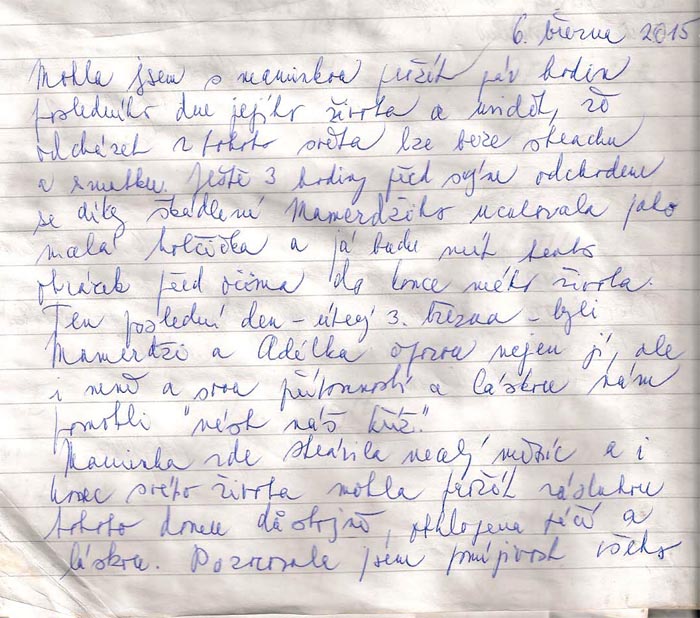 6. března 2015
Mohla jsem s maminkou prožít pár hodin
posledního dne jejího života a vidět, že
odcházet z tohoto světa lze beze strachu
a smutku. Ještě 3 hodiny před svým odchodem
se díky škádlení Mamerdžiho uculovala jako
malá holčička a já budu mít tento
obrázek před očima do konce mého života.
Ten poslední den – úterý 3. března – byli
Mamerdži a Adélka oporou nejen jí, ale
i mně a svou přítomností a láskou nám
pomohli "nést náš kříž."
Maminka zde strávila necelý měsíc a i
konec svého života mohla prožít zásluhou
tohoto domu důstojně, obklopena péčí a
láskou. Pozorovala jsem vnímavost všeho